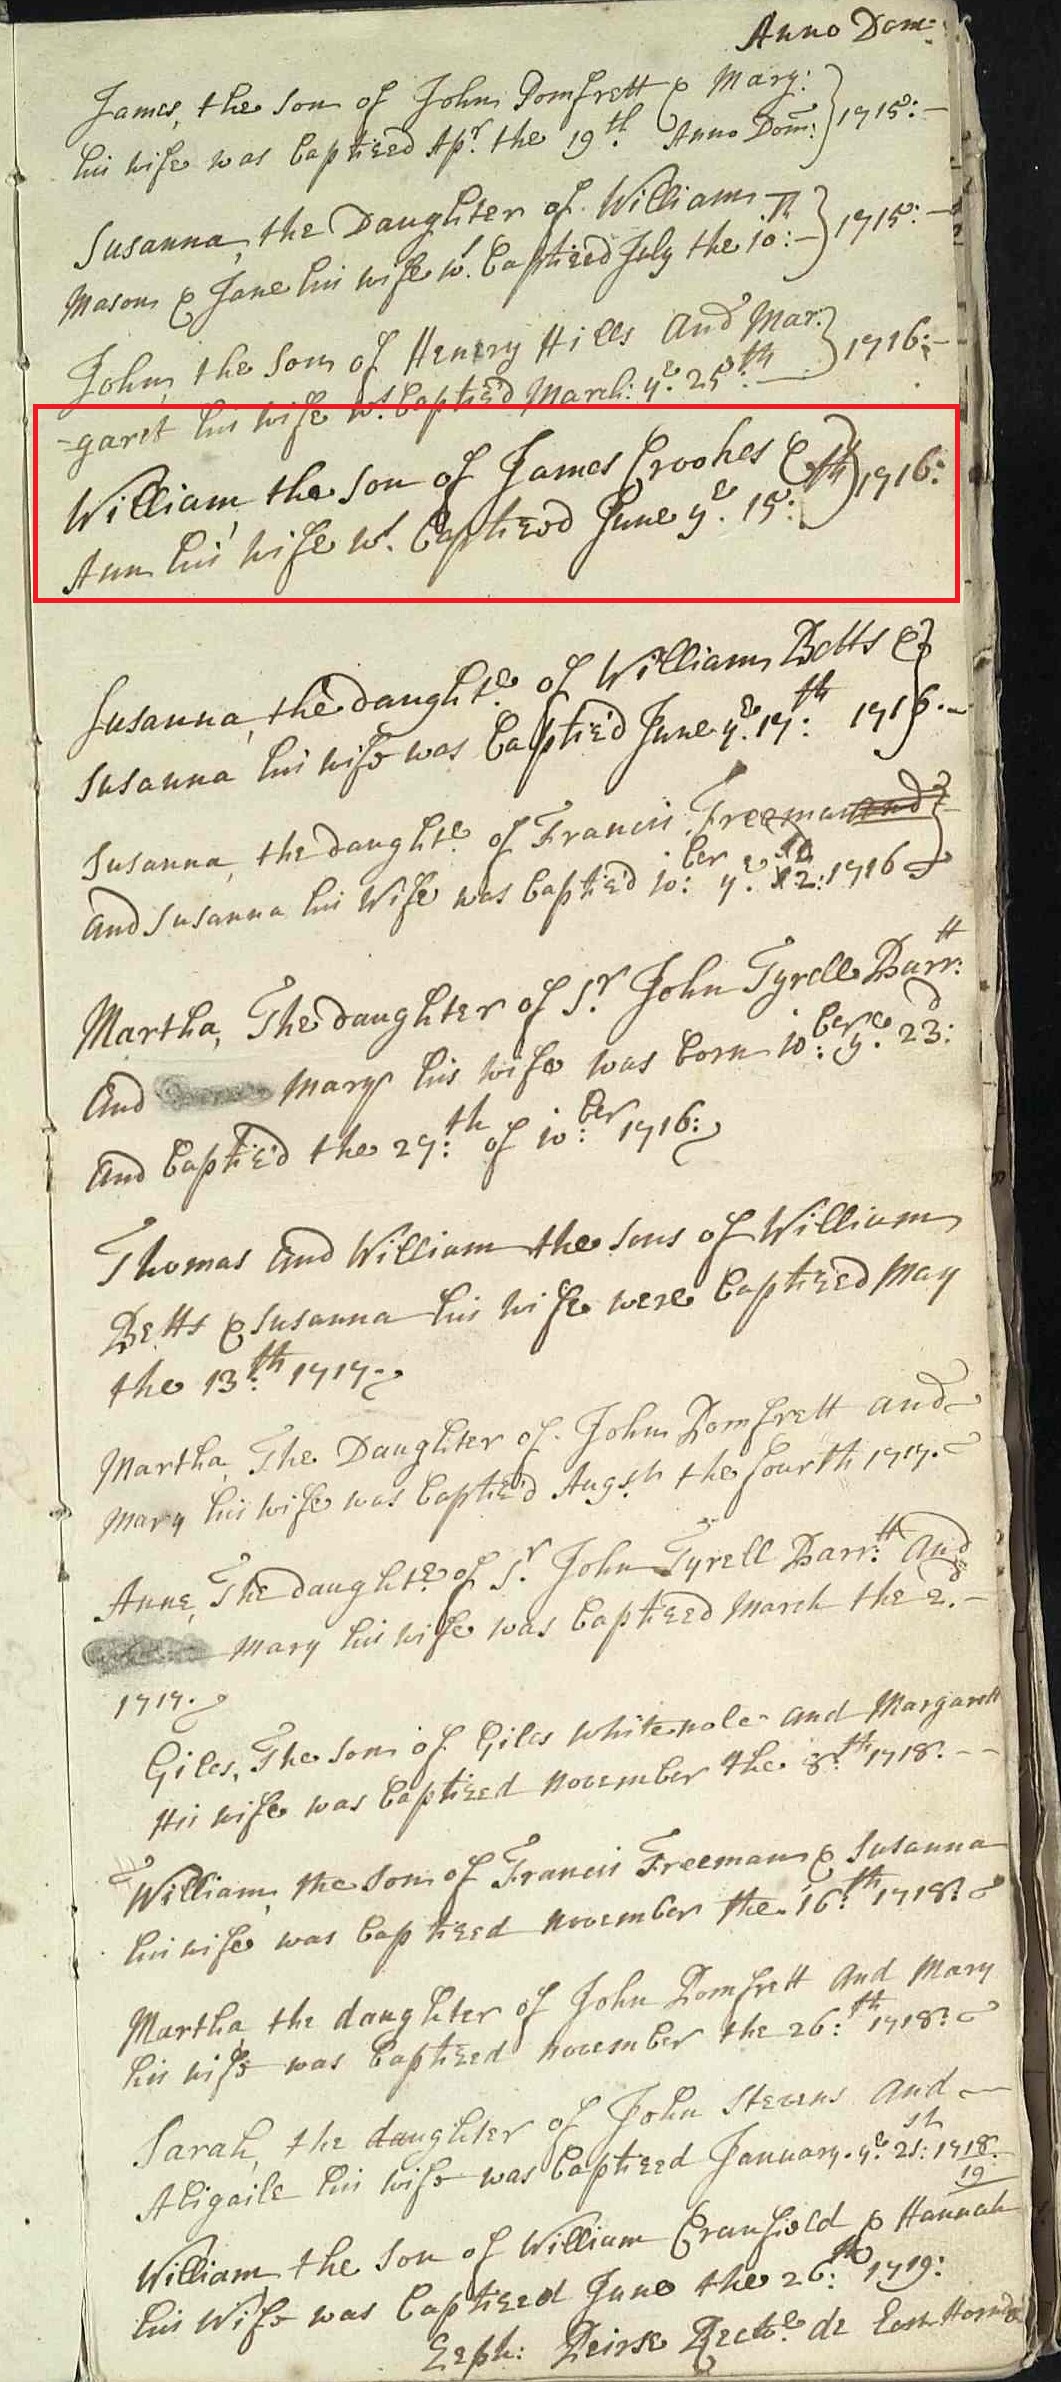 Anno Dom:
James, the Son of John Pomfrett & Mary:
his wife was baptized Apr. the 19th. Anno Dom: 1715: -
Susanna, the Daughter of William
Mason & Jane his wife w. baptized July the 10: - 1715: -
John, the Son of Henry Hills and Mar:
-garet his wife ws. baptized March: ye. 25th. 1716: -
William, the Son of James Crookes &
Ann his wife ws. Baptized June ye. 15:th 1716:
Susanna, the daughte. of William Betts &
Susanna his wife was baptiz'd June ye. 17:th 1716. -
Susanna, the daughte. of Francis Freeman and
and Susanna his Wife was baptiz'd 10:ber ye. 12: 1716
Martha, The daughter of Sr. John Tyrell Barr:tt
And Mary his wife was born 10:ber ye. 23:d
and baptiz'd the 27:th of 10:ber 1716:
Thomas and William the Sons of William
Betts & Susanna his wife were baptized May
the 13:th 1717.
Martha, The Daughter of John Pomfrett and
Mary his wife was baptiz'd Augst the fourth 1717.
Anne, The daughte. of Sr. John Tyrell Barr:tt And
Mary his wife was baptized March the 2.d -
1717.
Giles, The son of Giles Whitenole and Margarett
His wife was baptized November the 8:th 1718. - -
William, the Son of Francis Freeman & Susanna
his wife was baptized November the 16:th 1718:
Martha, the daughter of John Pomfrett and Mary
his wife was baptized November the 26:th 1718:
Sarah, the daughter of John Stevens and
Abigaile his wife was baptized January. ye. 21:st 1718/19
William the Son of William Cranfield & Hannah
his Wife was baptized June the 26:th 1719:
Eeph: Peirse Recte. de East Hornd